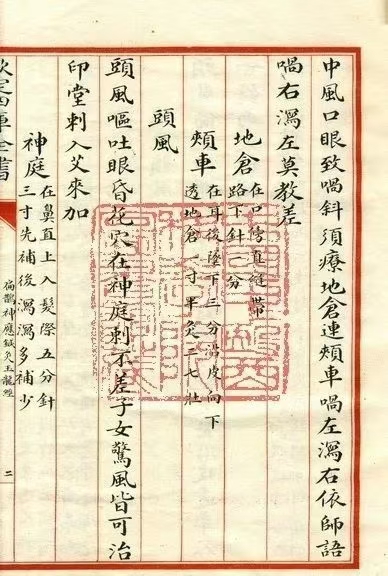 中風口眼致喎斜須療地倉連頰車喎左瀉右依師語
喎右瀉左莫教差
地倉
在口傍直縫帶
路下針一分
頰車
在耳後墜下三分沿皮向下
透地倉一寸半灸二七壯
頭風
頭風嘔吐眼昏花穴在神庭刺不差子女驚風皆可治
印堂刺入艾來加
神庭
在鼻直上入髮際五分針
三寸先補後瀉瀉多補少
欽定四庫全書
扁鵲神應鍼灸玉龍經
二